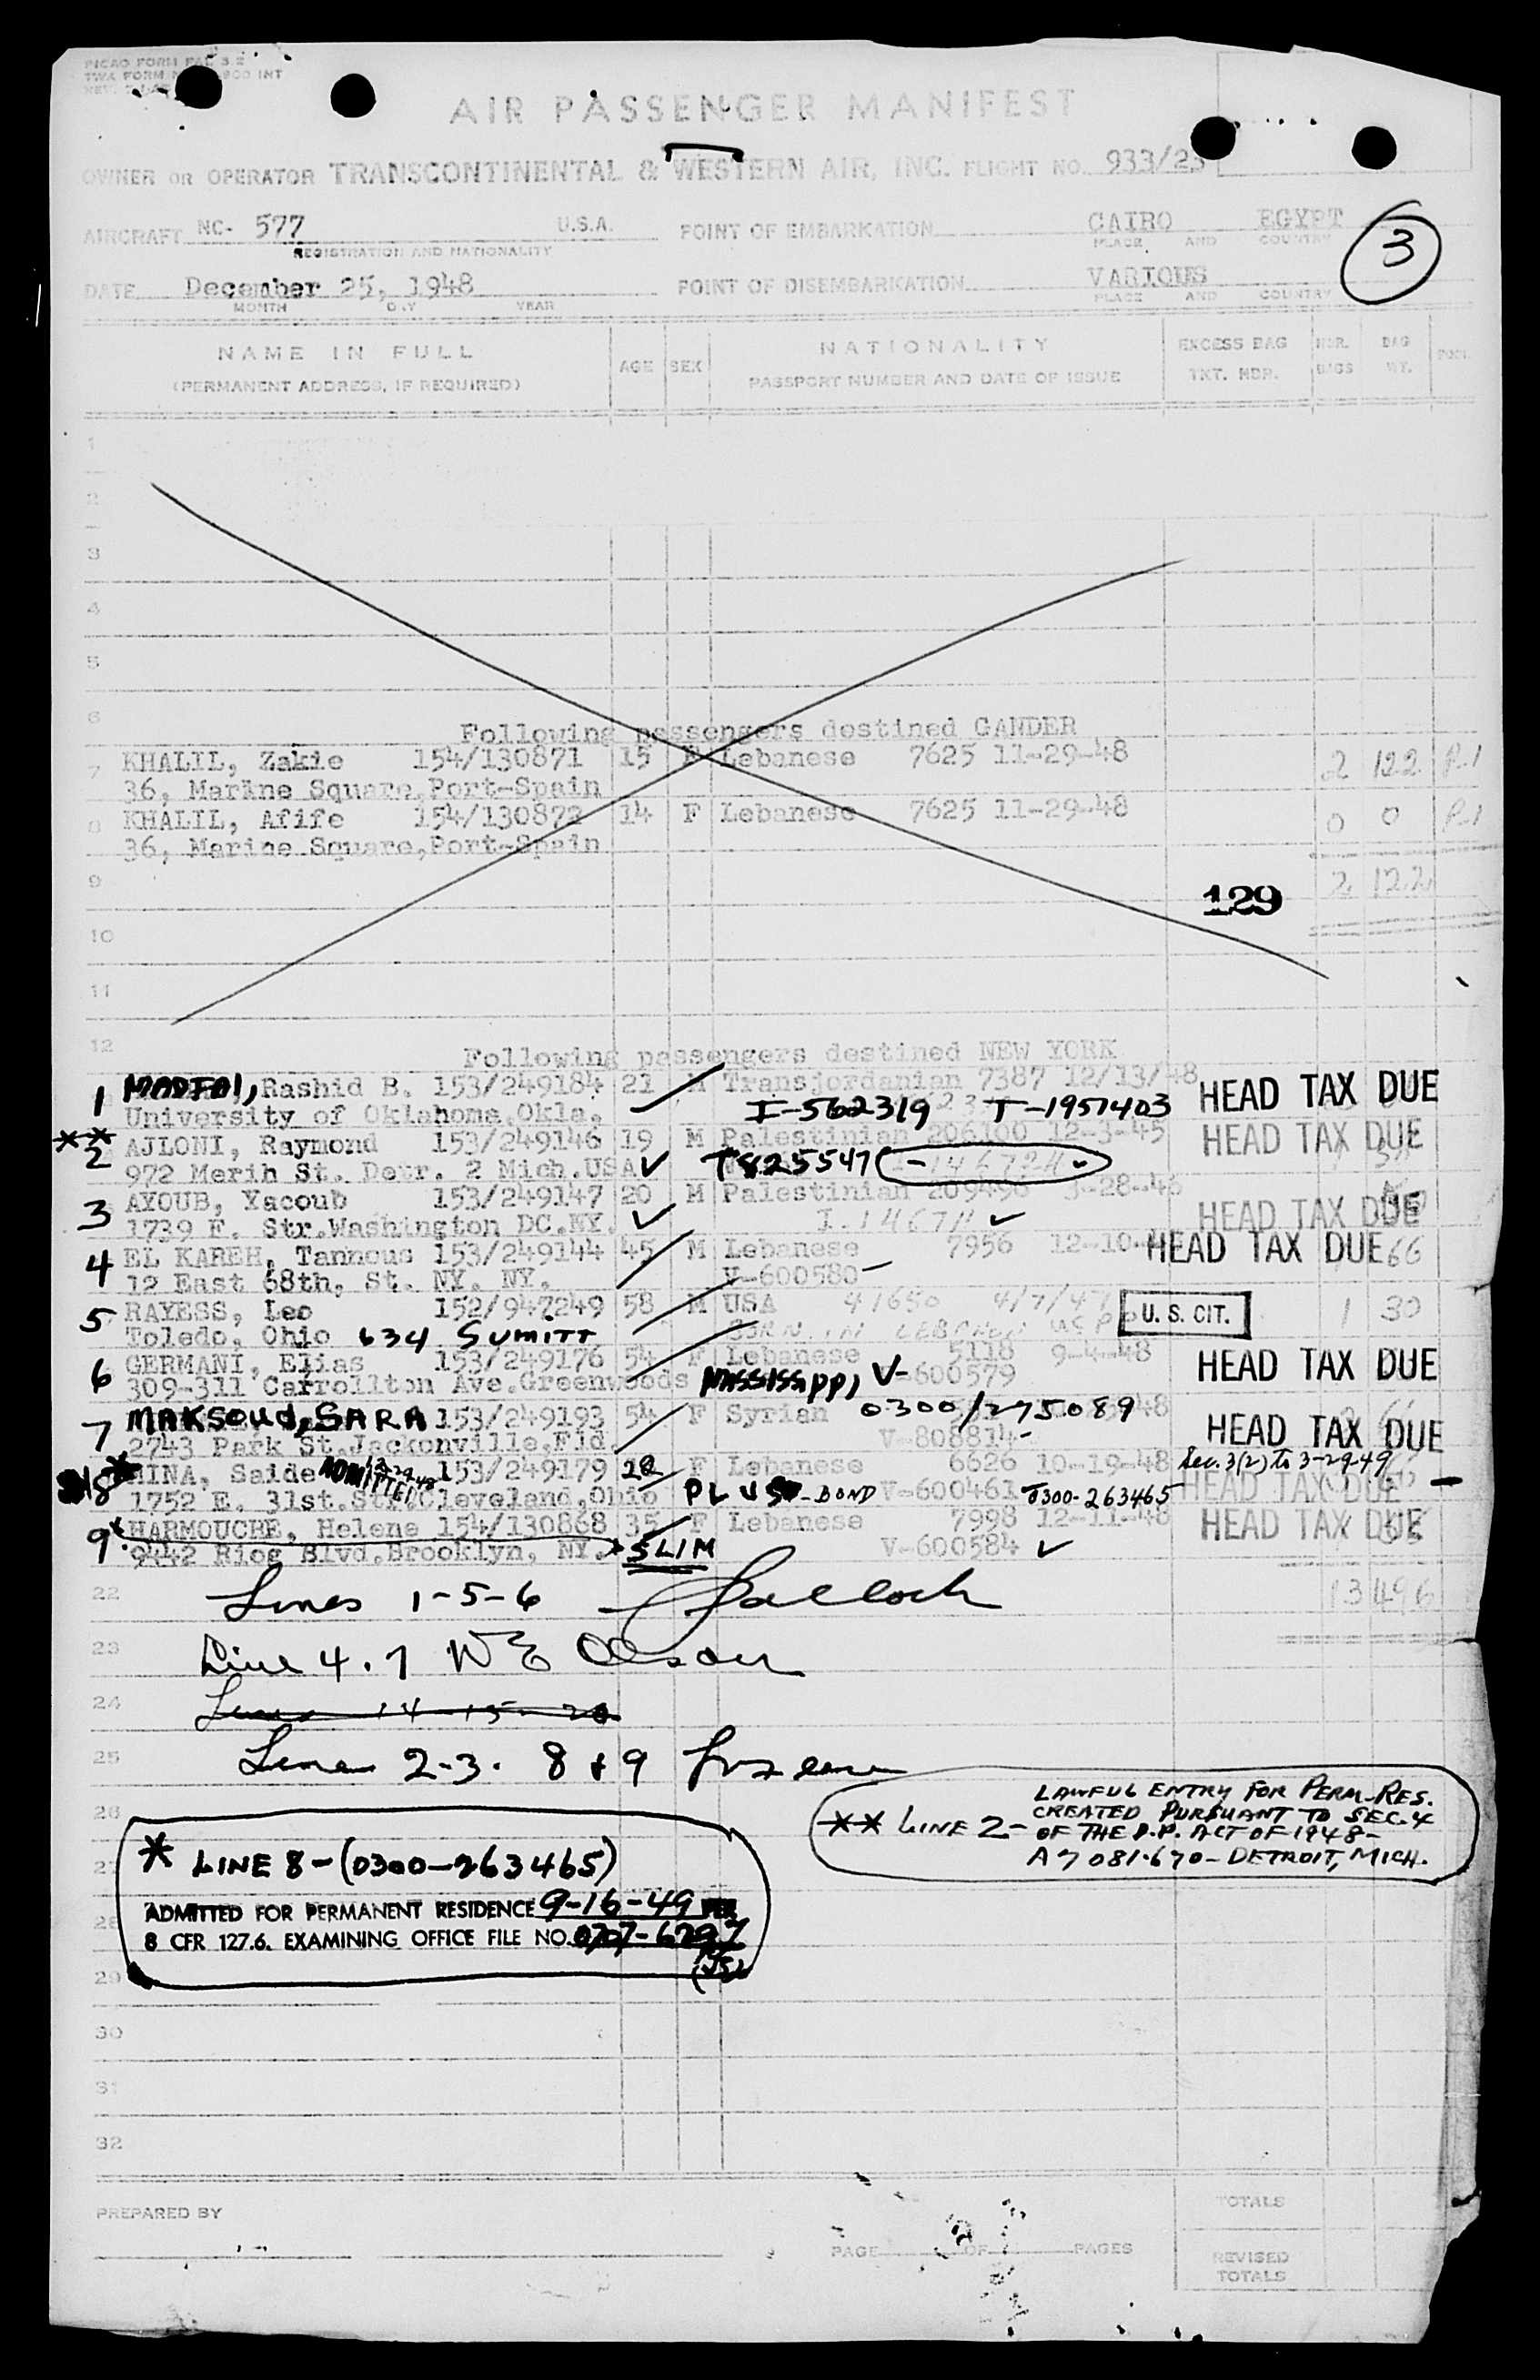 PICAO FORM PAL 3.2
TWA FORM 900 INT
AIR PASSENGER MANIFEST
OWNER OR OPERATOR TRANSCONTINENTAL & WESTERN AIR, INC. FLIGHT NO. 933/23
AIRCRAFT NC- 577 U.S.A. POINT OF EMBARKATION CAIRO EGYPT
REGISTRATION AND NATIONALITY PLACE AND COUNTRY
3
DATE December 25, 1948 POINT OF DISEMBARKATION VARIOUS
MONTH DAY YEAR PLACE AND COUNTRY
NAME IN FULL AGE SEX NATIONALITY EXCESS BAG NBR. BAG
(PERMANENT ADDRESS, IF REQUIRED) PASSPORT NUMBER AND DATE OF ISSUE TKT. NBR. BAGS WT.
1
2
3
4
5
6
Following passengers destined GANDER
7 KHALIL, Zakie 154/130871 15 F Lebanese 7625 11-29-48 2 122 P.1
36, Marine Square, Port-Spain
8 KHALIL, Afife 154/130872 14 F Lebanese 7625 11-29-48 0 0 P.1
36, Marine Square, Port-Spain
9 2 122
129
10
11
12
Following passengers destined NEW YORK
1 Rashid B. 153/249184 21 M Transjordanian 7387 12/13/48 HEAD TAX DUE
University of Oklahoma, Okla. I-562319 T-1951403
** 2 AJLONI, Raymond 153/249146 19 M Palestinian 206100 12-3-45 HEAD TAX DUE
972 Merih St. Detr. 2 Mich. USA T825547 I-14672H
3 AYOUB, Yacoub 153/249147 20 M Palestinian 209496 3-28-46 HEAD TAX DUE
1739 F. Str. Washington DC. NY. I.14671
4 EL KAREH, Tannous 153/249144 45 M Lebanese 7956 12-10- HEAD TAX DUE 66
12 East 68th, St. NY. NY. V-600580
5 RAYESS, Leo 152/947249 58 M USA 41650 4/7/47 U. S. CIT. 1 30
Toledo, Ohio 634 SUMITT BORN IN LEBANON
6 GERMANI, Elias 153/249176 54 F Lebanese 5118 9-4-48 HEAD TAX DUE
309-311 Carrollton Ave. Greenwoods MISSISSIPPI V-600579
7 MAKSOUD, SARA 153/249193 54 F Syrian 0300/275089 48 HEAD TAX DUE
2743 Park St. Jackonville, Fld. V-808814
*8 MINA, Saide ADMITTED 153/249179 28 F Lebanese 6626 10-19-48 Sec. 3(2) to 3-29-49
1752 E. 31st. St. Cleveland, Ohio PLUS - BOND V-600461 0300-263465 HEAD TAX DUE
9 HARMOUCHE, Helene 154/130868 35 F Lebanese 7998 12-11-48 HEAD TAX DUE
9442 Riog Blvd. Brooklyn, NY. SLIM V-600584
22 Lines 1-5-6 13 496
23 Line 4.7 W E Olson
24 Lines 14-15-20
25 Line 2-3. 8 & 9
26
** LINE 2- LAWFUL ENTRY FOR PERM. RES.
CREATED PURSUANT TO SEC. 4
OF THE D.P. ACT OF 1948-
A7 081.670 - DETROIT, MICH.
27 * LINE 8-(0300-263465)
ADMITTED FOR PERMANENT RESIDENCE 9-16-49 PER
28 8 CFR 127.6. EXAMINING OFFICE FILE NO. 0707-6297
29
30
31
32
PREPARED BY PAGE OF PAGES TOTALS
REVISED
TOTALS